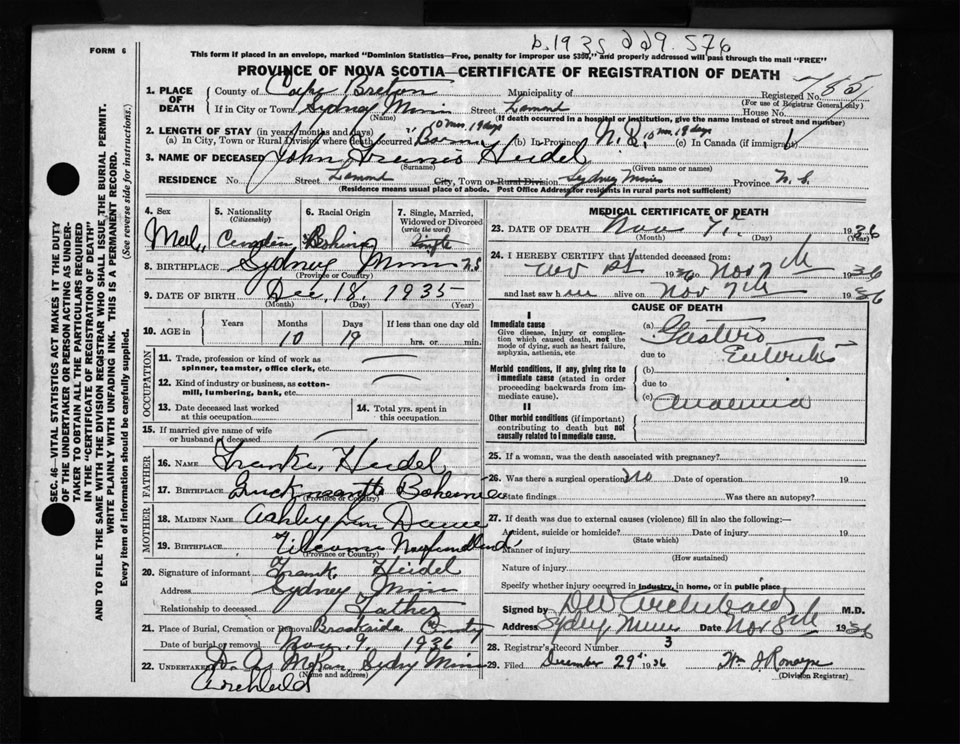 FORM 6
b.1935
576
This form if placed in an envelope, marked "Dominion Statistics—Free, penalty for improper use $300," and properly addressed will pass through the mail "FREE"
PROVINCE OF NOVA SCOTIA—CERTIFICATE OF REGISTRATION OF DEATH
1. PLACE OF DEATH
County of Cape Breton Municipality of Registered No.
(For use of Registrar General only)
If in City or Town Sydney Mines Street House No.
(Name) (If death occurred in a hospital or institution, give the name instead of street and number)
2. LENGTH OF STAY (in years, months and days) 10 mos. 19 days
(a) In City, Town or Rural Division where death occurred (b) In Province N.S. 10 mos 19 days (c) In Canada (if immigrant)
3. NAME OF DECEASED John Francis Heidel
(Surname) (Given name or names)
RESIDENCE No. Street City, Town or Rural Division Sydney Mines Province N.S.
(Residence means usual place of abode. Post Office Address for residents in rural parts not sufficient)
SEC. 46—VITAL STATISTICS ACT MAKES IT THE DUTY
OF THE UNDERTAKER OR PERSON ACTING AS UNDER-
TAKER TO OBTAIN ALL THE PARTICULARS REQUIRED
IN THE "CERTIFICATE OF REGISTRATION OF DEATH"
AND TO FILE THE SAME WITH THE DIVISION REGISTRAR WHO SHALL ISSUE THE BURIAL PERMIT.
WRITE PLAINLY WITH UNFADING INK. THIS IS A PERMANENT RECORD.
Every item of information should be carefully supplied. (See reverse side for instructions.)
4. Sex
5. Nationality
(Citizenship)
6. Racial Origin
7. Single, Married,
Widowed or Divorced
(write the word)
Male Single
8. BIRTHPLACE Sydney Mines N.S
(Province or Country)
9. DATE OF BIRTH Dec. 18 1935
(Month) (Day) (Year)
10. AGE in Years Months Days If less than one day old
10 19 hrs. or min.
OCCUPATION
11. Trade, profession or kind of work as
spinner, teamster, office clerk, etc.
12. Kind of industry or business, as cotton-
mill, lumbering, bank, etc.
13. Date deceased last worked
at this occupation
14. Total yrs. spent in
this occupation
15. If married give name of wife
or husband of deceased
FATHER
16. NAME Frank Heidel
17. BIRTHPLACE Bohemia
(Province or Country)
MOTHER
18. MAIDEN NAME Ashley
19. BIRTHPLACE Newfoundland
(Province or Country)
20. Signature of informant Frank Heidel
Address Sydney Mines
Relationship to deceased Father
21. Place of Burial, Cremation or Removal Brookside
Date of burial or removal Nov. 9, 1936
22. UNDERTAKER Sydney Mines
(Name and address)
MEDICAL CERTIFICATE OF DEATH
23. DATE OF DEATH Nov 7th 1936
(Month) (Day) (Year)
24. I HEREBY CERTIFY that I attended deceased from:
Nov 7th 1936
and last saw h alive on Nov 7th 1936
CAUSE OF DEATH
I
Immediate cause
Give disease, injury or complica-
tion which caused death, not the
mode of dying, such as heart failure,
asphyxia, asthenia, etc
(a) Gastro
due to Enteritis
Morbid conditions, if any, giving rise to
immediate cause (stated in order
proceeding backwards from im-
mediate cause).
(b)
due to
(c) Anaemia
II
Other morbid conditions (if important)
contributing to death but not
causally related to immediate cause.
25. If a woman, was the death associated with pregnancy?
26. Was there a surgical operation? no Date of operation 19
State findings Was there an autopsy?
27. If death was due to external causes (violence) fill in also the following:—
Accident, suicide or homicide? Date of injury 19
(State which)
Manner of injury
(How sustained)
Nature of injury
Specify whether injury occurred in industry, in home, or in public place
Signed by Archibald M.D.
Address Sydney Mines Date Nov 8th 1936
28. Registrar's Record Number 3
29. Filed December 29th 1936
(Division Registrar)